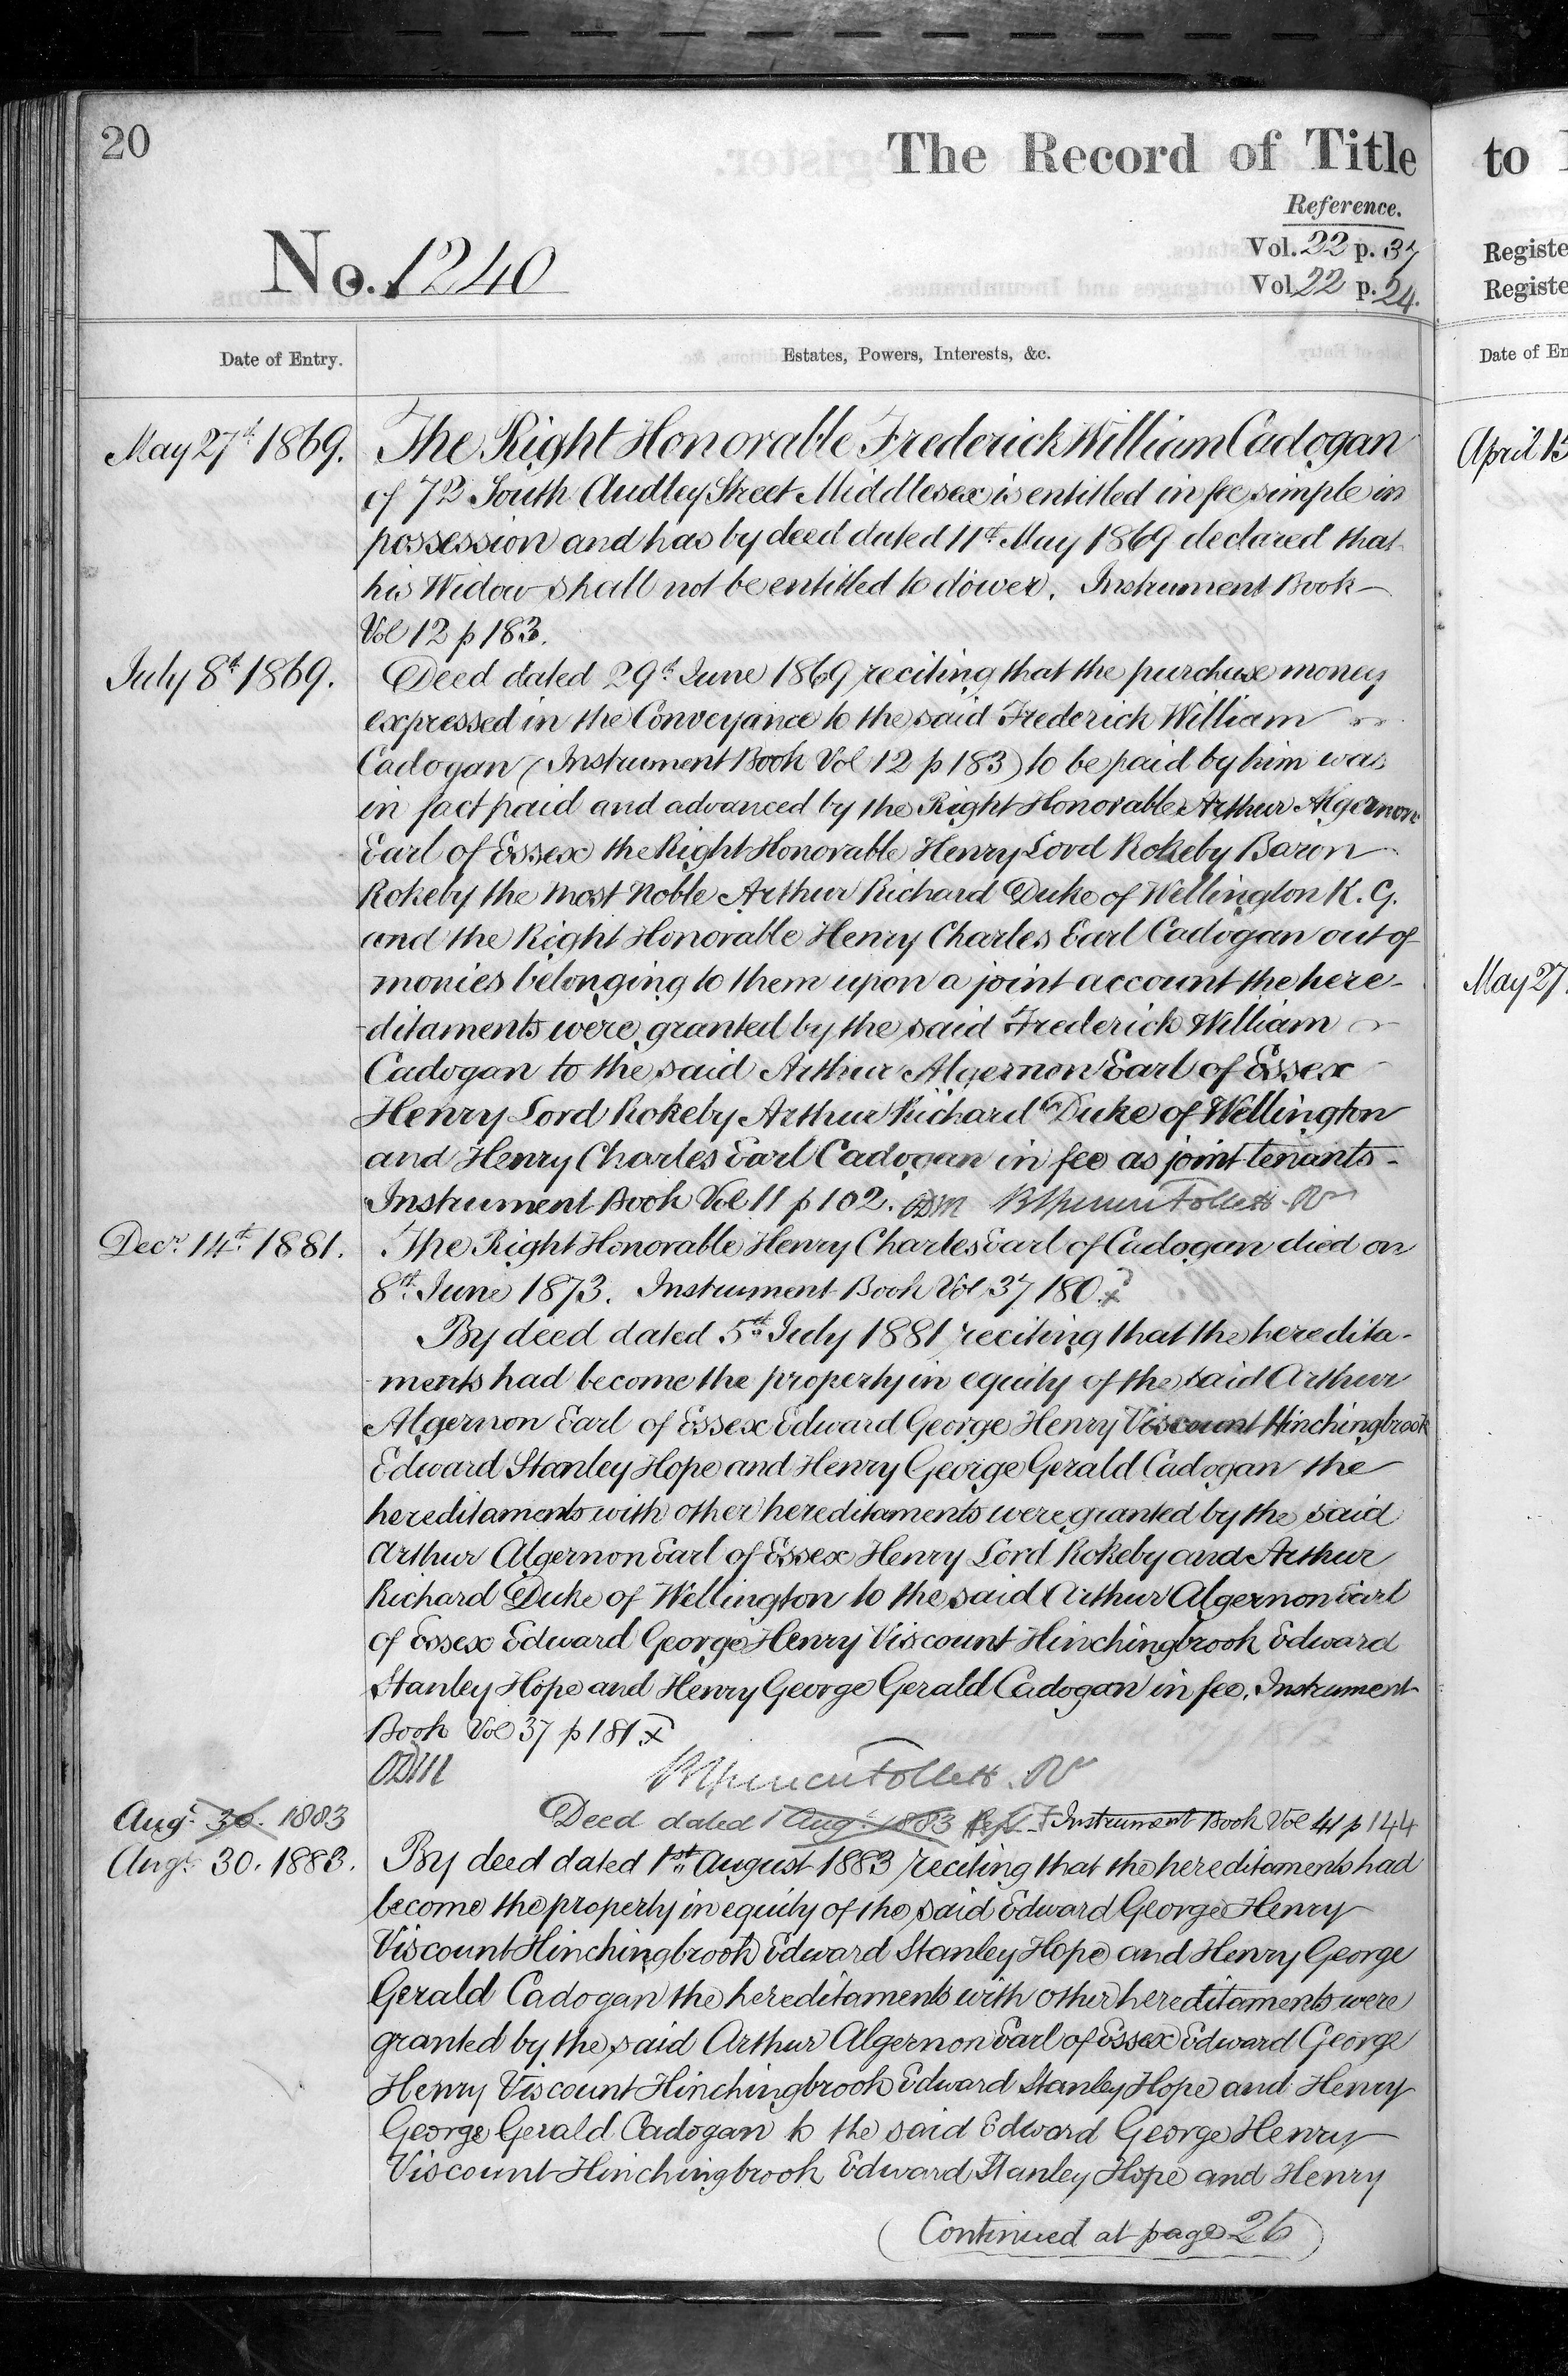 20
The Record of Title
Reference.
No. 1240
Vol. 22 p. 37
Vol 22 p. 24.
Date of Entry.
Estates, Powers, Interests, &c.
May 27th 1869.
The Right Honorable Frederick William Cadogan
of 72 South Audley Street Middlesex is entitled in fee simple in
possession and has by deed dated 11th May 1869 declared that
his Widow shall not be entitled to dower. Instrument Book
Vol 12 p 183.
July 8th 1869.
Deed dated 29th June 1869 reciting that the purchase money
expressed in the Conveyance to the said Frederick William
Cadogan (Instrument Book Vol 12 p 183) to be paid by him was
in fact paid and advanced by the Right Honorable Arthur Algernon
Earl of Essex the Right Honorable Henry Lord Rokeby Baron
Rokeby the Most Noble Arthur Richard Duke of Wellington K. G.
and the Right Honorable Henry Charles Earl Cadogan out of
monies belonging to them upon a joint account the here-
-ditaments were granted by the said Frederick William
Cadogan to the said Arthur Algernon Earl of Essex
Henry Lord Rokeby Arthur Richard Duke of Wellington
and Henry Charles Earl Cadogan in fee as joint tenants.
Instrument Book Vol 11 p 102. Follett
Decr. 14th 1881.
The Right Honorable Henry Charles Earl of Cadogan died on
8th June 1873. Instrument Book Vol 37 180.
By deed dated 5th July 1881 reciting that the heredita-
-ments had become the property in equity of the said Arthur
Algernon Earl of Essex Edward George Henry Viscount Hinchingbrook
Edward Stanley Hope and Henry George Gerald Cadogan the
hereditaments with other hereditaments were granted by the said
Arthur Algernon Earl of Essex Henry Lord Rokeby and Arthur
Richard Duke of Wellington to the said Arthur Algernon Earl
of Essex Edward George Henry Viscount Hinchingbrook Edward
Stanley Hope and Henry George Gerald Cadogan in fee. Instrument
Book Vol 37 p 181 x
Follett
Augt. 30. 1883
Deed dated 1 Augt. 1883 Instrument Book Vol 41 p 144
Augt. 30. 1883.
By deed dated 1st August 1883 reciting that the hereditaments had
become the property in equity of the said Edward George Henry
Viscount Hinchingbrook Edward Stanley Hope and Henry George
Gerald Cadogan the hereditaments with other hereditaments were
granted by the said Arthur Algernon Earl of Essex Edward George
Henry Viscount Hinchingbrook Edward Stanley Hope and Henry
George Gerald Cadogan to the said Edward George Henry
Viscount Hinchingbrook Edward Stanley Hope and Henry
(Continued at page 26)
to
Registe
Registe
Date of En
April 13
May 27